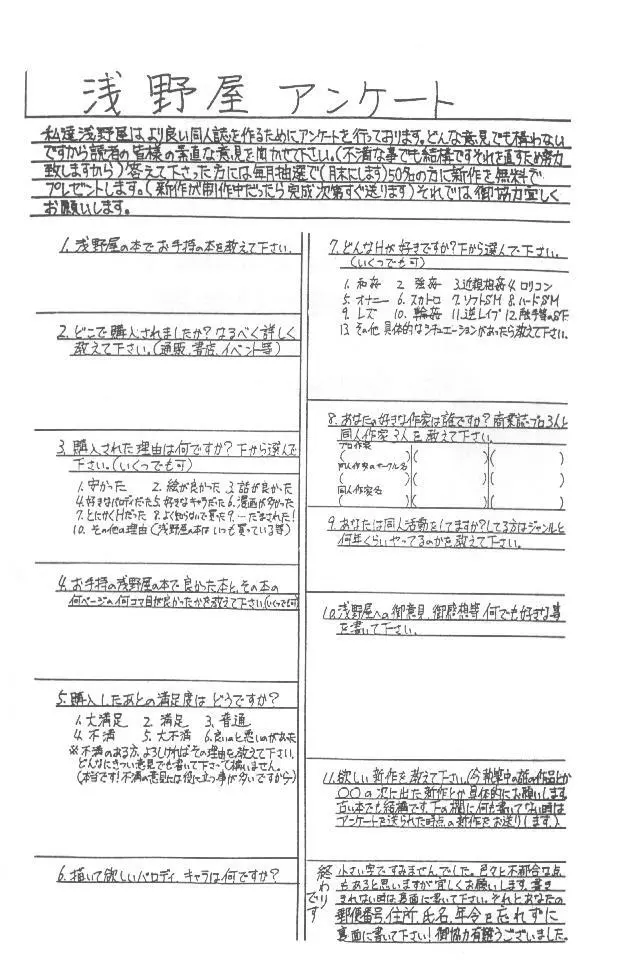 浅野屋 アンケート
私達浅野屋はより良い同人誌を作るためにアンケートを行っております。どんな意見でも構わない
ですから読者の皆様の素直な意見を聞かせて下さい。(不満な事でも結構ですそれを直すため努力
致しますから)答えて下さった方には毎月抽選で(月末にします)50名の方に新作を無料で
プレゼントします。(新作が制作中だったら完成次第すぐ送ります)それでは御協力宜しく
お願いします。
1. 浅野屋の本でお手持の本を教えて下さい.
2. どこで購入されましたか?なるべく詳しく
教えて下さい。(通販、書店、イベント等)
3. 購入された理由は何ですか?下から選んで
下さい。(いくつでも可)
1. 安かった 2. 絵が良かった 3. 話が良かった
4. 好きなパロディだった 5. 好きなキャラだった 6. 漫画が多かった
7. とにかくHだった 8. よく知らないで買った 9. …だまされた!
10. その他の理由(浅野屋の本はいつも買っている等)
4. お手持の浅野屋の本で良かった本と、その本の
何ページの何コマ目が良かったかを教えて下さい.(いくつでも可)
5. 購入したあとの満足度はどうですか?
1. 大満足 2. 満足 3. 普通
4. 不満 5. 大不満 6. 良いのと悪いのがあった
※不満のある方、よろしければその理由を教えて下さい.
どんなにきつい意見でも書いて下さって構いません。
(本当です!不満の意見には役に立つ事が多いですから)
6. 描いて欲しいパロディ、キャラは何ですか?
7. どんなHが好きですか?下から選んで下さい。
(いくつでも可)
1. 和姦 2. 強姦 3. 近親相姦 4. ロリコン
5. オナニー 6. スカトロ 7. ソフトSM 8. ハードSM
9. レズ 10. 輪姦 11. 逆レイプ 12. 触手等のSF
13. その他 具体的なシチュエーションがあったら教えて下さい.
8. あなたの好きな作家は誰ですか?商業誌・プロ3人と
同人作家3人を教えて下さい.
プロ作家
( )( )( )
同人作家のサークル名
( )( )( )
同人作家名
( )( )( )
9. あなたは同人活動をしてますか?してる方はジャンルと
何年くらいやってるのかを教えて下さい.
10. 浅野屋への御意見、御感想等何でも好きな事
を書いて下さい.
11. 欲しい新作を教えて下さい.(今執筆中の の作品とか
〇〇の次に出た新作とか具体的にお願いします
古い本でも結構です.下の欄に何も書いてない時は
アンケートを送られた時点の新作をお送りします.)
終わりです
小さい字ですみませんでした。色々と不都合な点
もあると思いますが宜しくお願いします.書き
きれない時は裏面に書いて下さい. それとあなたの
郵便番号、住所、氏名、年令を忘れずに
裏面に書いて下さい!御協力有難うございました。